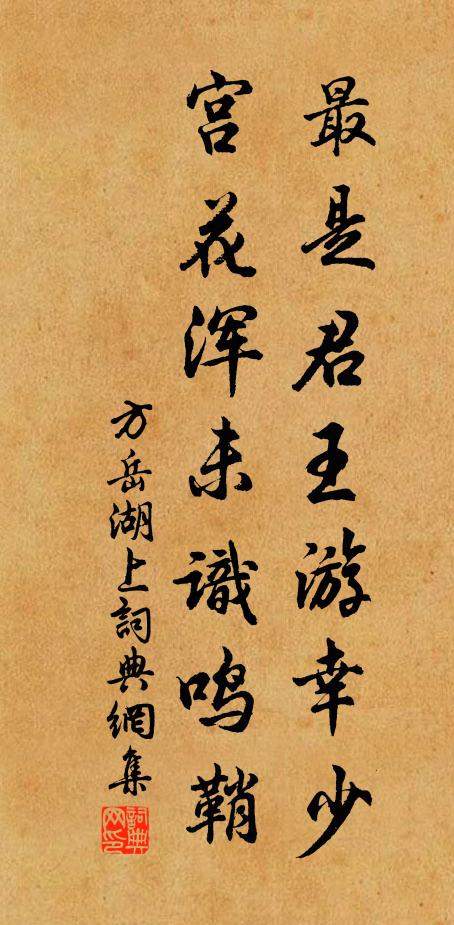 最是君王游幸少
宫花浑未識鸣鞘
方岳湖上詞典網集
詞典网印